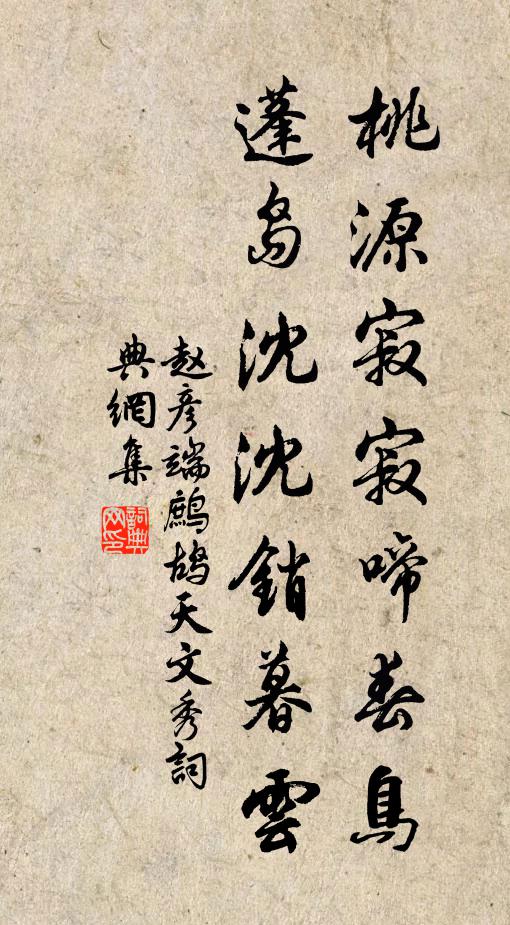 桃源寂寂啼春鳥
蓬島沈沈銷暮雲
赵彦端鷓鴣天文秀詞
典網集
詞典网印